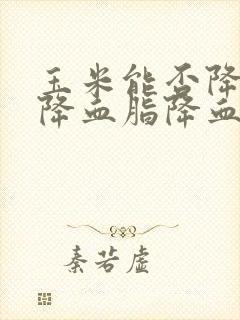 玉米能否降
降血脂降血
秦若虚